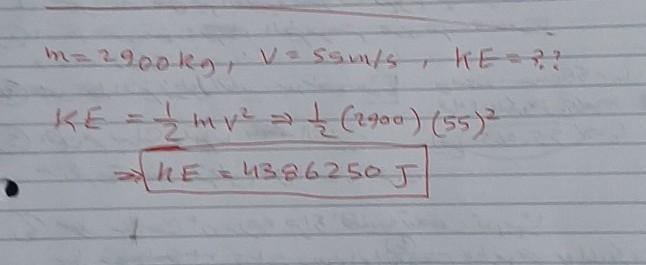 m = 2900 kg, V = 55 m/s, KE = ??
KE = 1/2 mv² ⇒ 1/2 (2900) (55)²
⇒ KE = 4386250 J